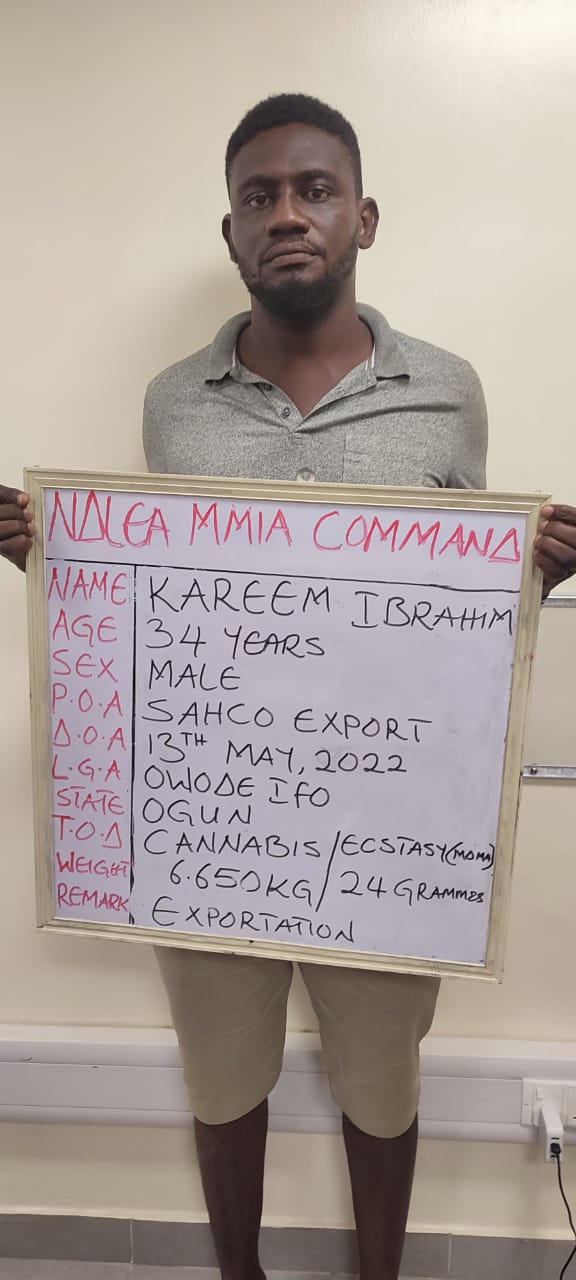 NDLEA MMIA COMMAND
NAME KAREEM IBRAHIM
AGE 34 YEARS
SEX MALE
P.O.A SAHCO EXPORT
D.O.A 13TH MAY, 2022
L.G.A OWODE IFO
STATE OGUN
T.O.D CANNABIS/ECSTASY(MDMA)
WEIGHT 6.650KG/24 GRAMMES
REMARK EXPORTATION